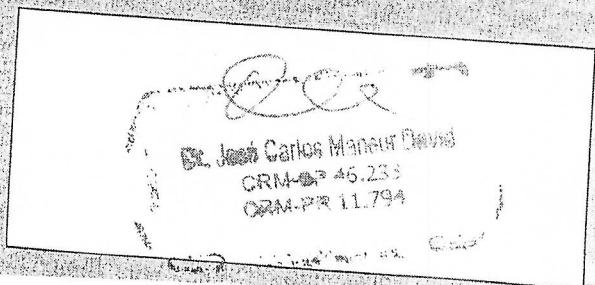 Dr. José Carlos Mansur David
CRM-SP 46.233
CRM-PR 11.794